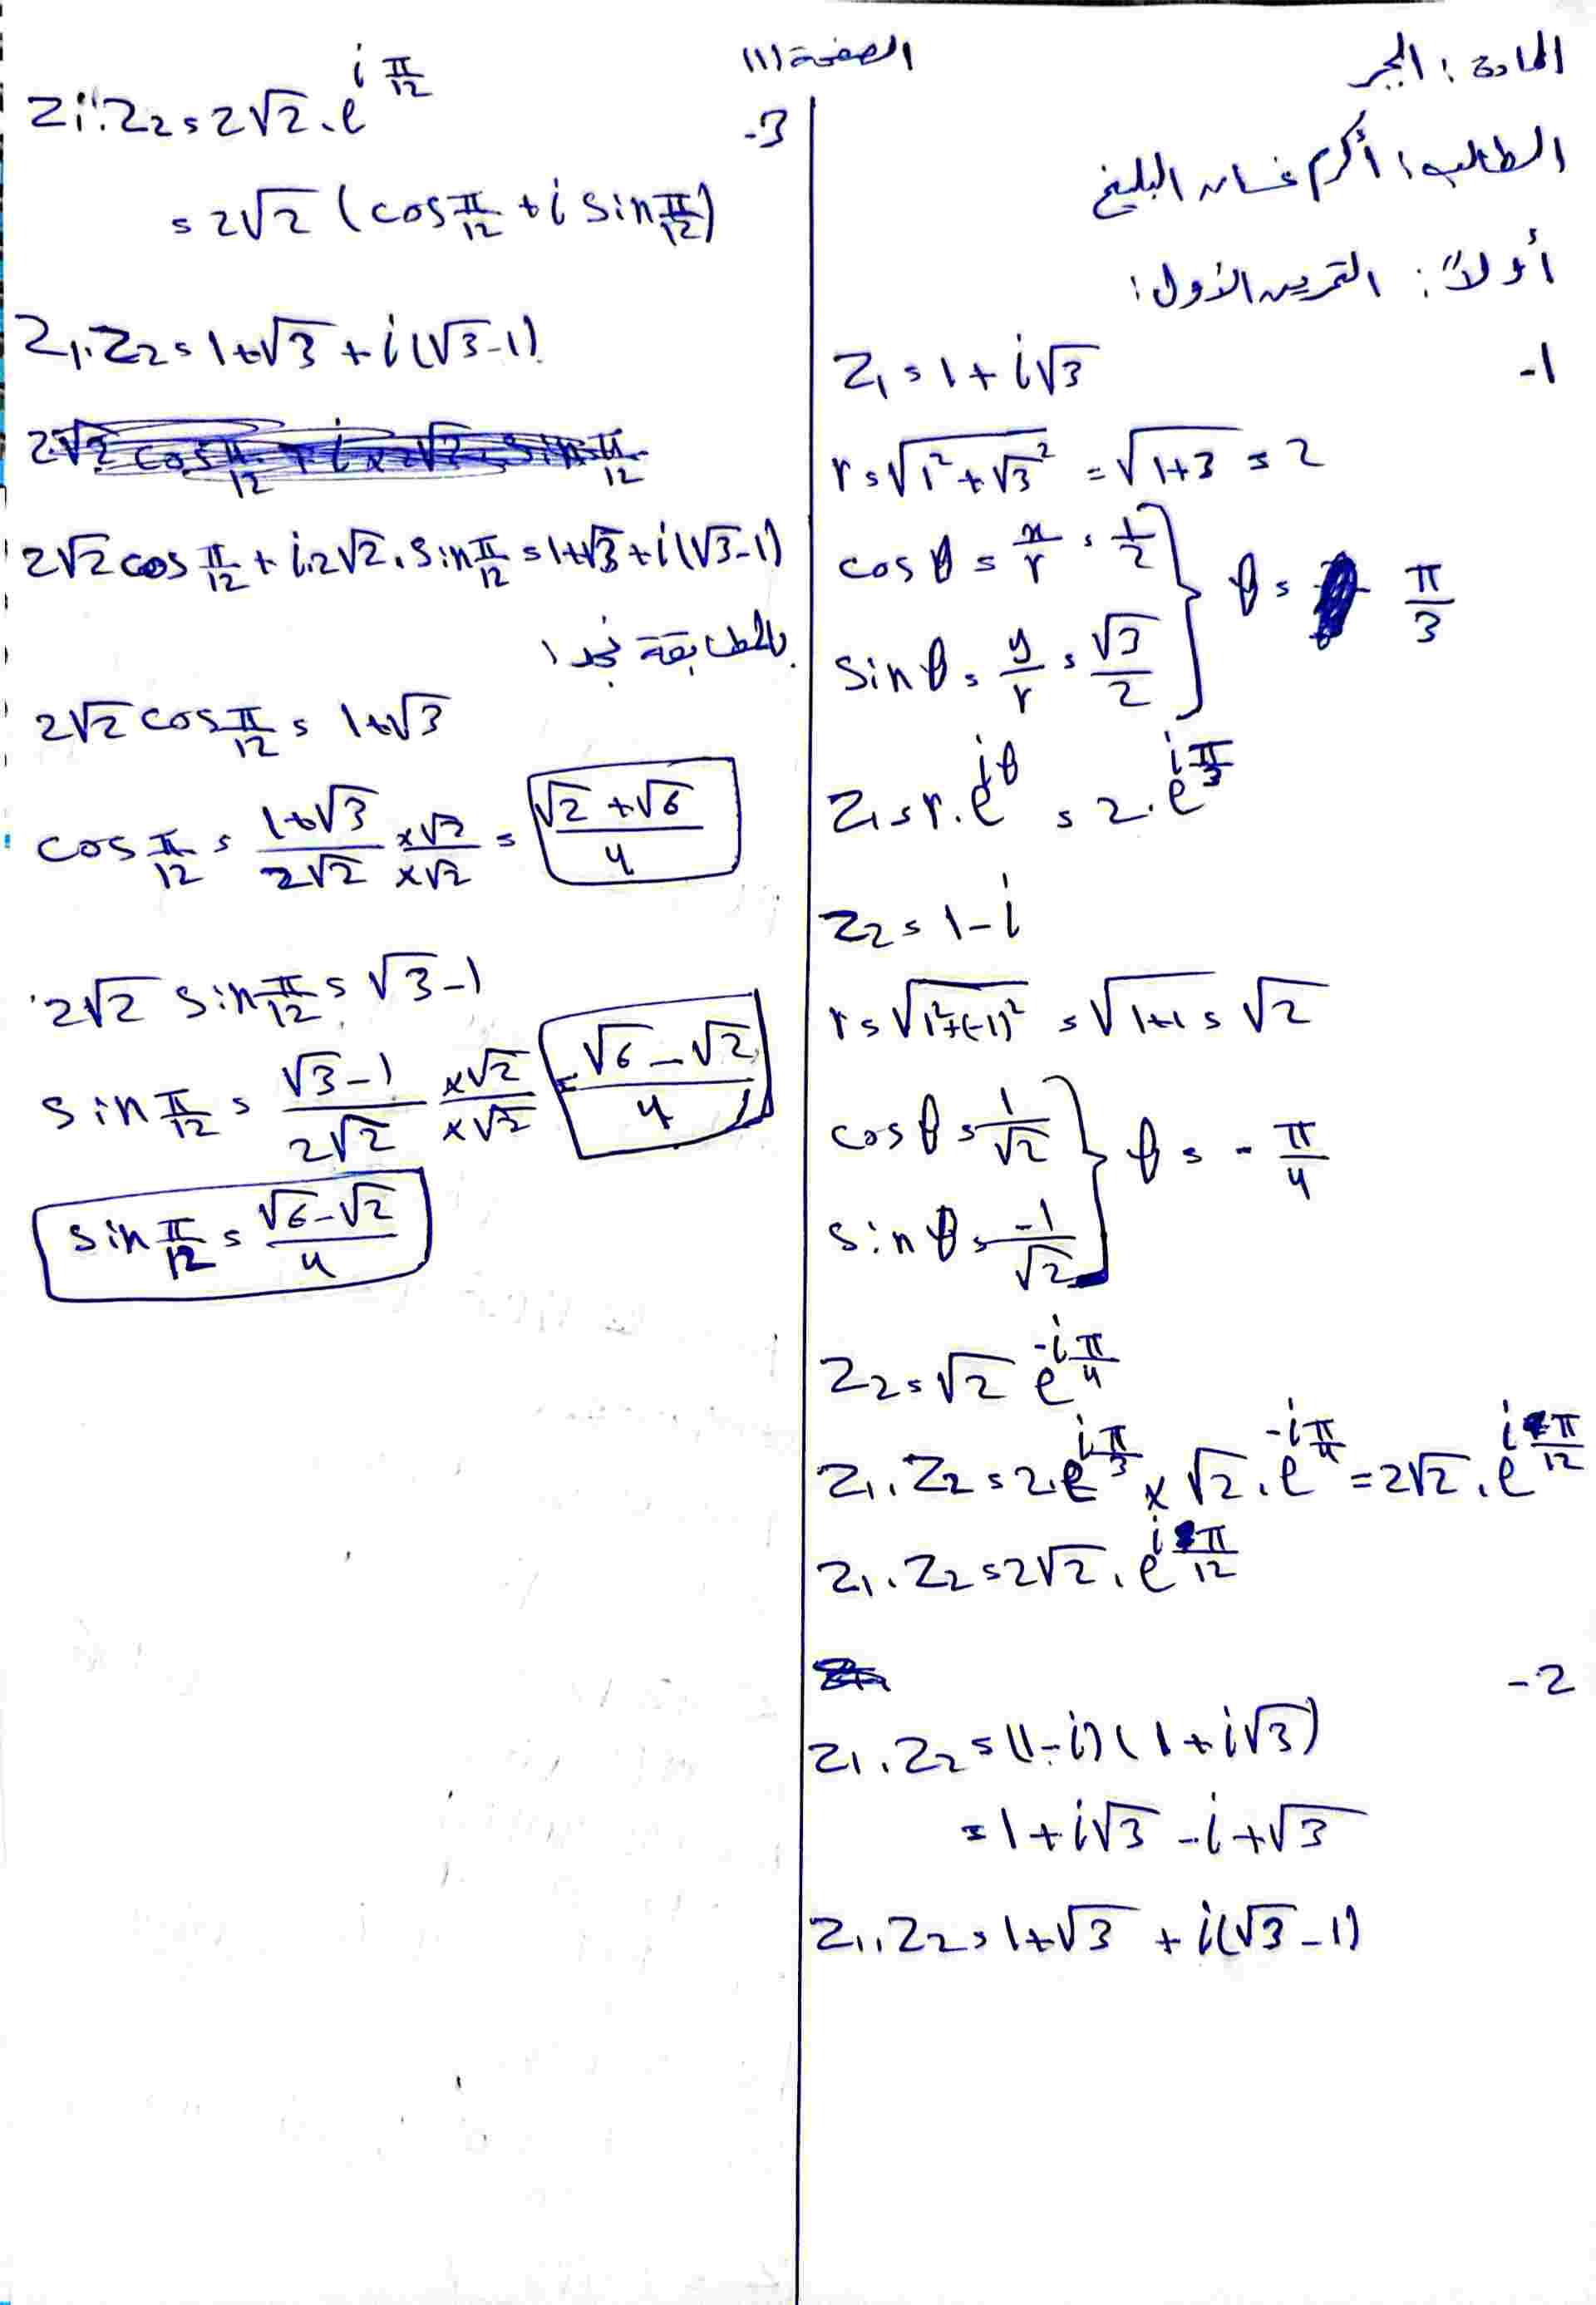 الصفحة (١)
المادة: الجبر
الطالب: أكرم غسان البليخ
أولاً: التمرين الأول:
-1
Z₁ = 1 + i√3
r = √(1² + √3²) = √(1+3) = 2
cos θ = x/r = 1/2
sin θ = y/r = √3/2 } θ = π/3
Z₁ = r.e^(iθ) = 2.e^(i π/3)
Z₂ = 1 - i
r = √(1²+(-1)²) = √(1+1) = √2
cos θ = 1/√2
sin θ = -1/√2 } θ = - π/4
Z₂ = √2 e^(-i π/4)
Z₁.Z₂ = 2.e^(i π/3) × √2.e^(-i π/4) = 2√2.e^(i π/12)
Z₁.Z₂ = 2√2.e^(i π/12)
-2
Z₁.Z₂ = (1-i)(1+i√3)
= 1 + i√3 - i + √3
Z₁.Z₂ = 1+√3 + i(√3-1)
-3
Z₁.Z₂ = 2√2.e^(i π/12)
= 2√2 (cos π/12 + i sin π/12)
Z₁.Z₂ = 1+√3 + i(√3-1)
2√2 cos π/12 + i.2√2.sin π/12 = 1+√3 + i(√3-1)
بالمطابقة نجد:
2√2 cos π/12 = 1+√3
cos π/12 = (1+√3)/(2√2) ×√2/×√2 = (√2+√6)/4
2√2 sin π/12 = √3-1
sin π/12 = (√3-1)/(2√2) ×√2/×√2 = (√6-√2)/4
sin π/12 = (√6-√2)/4